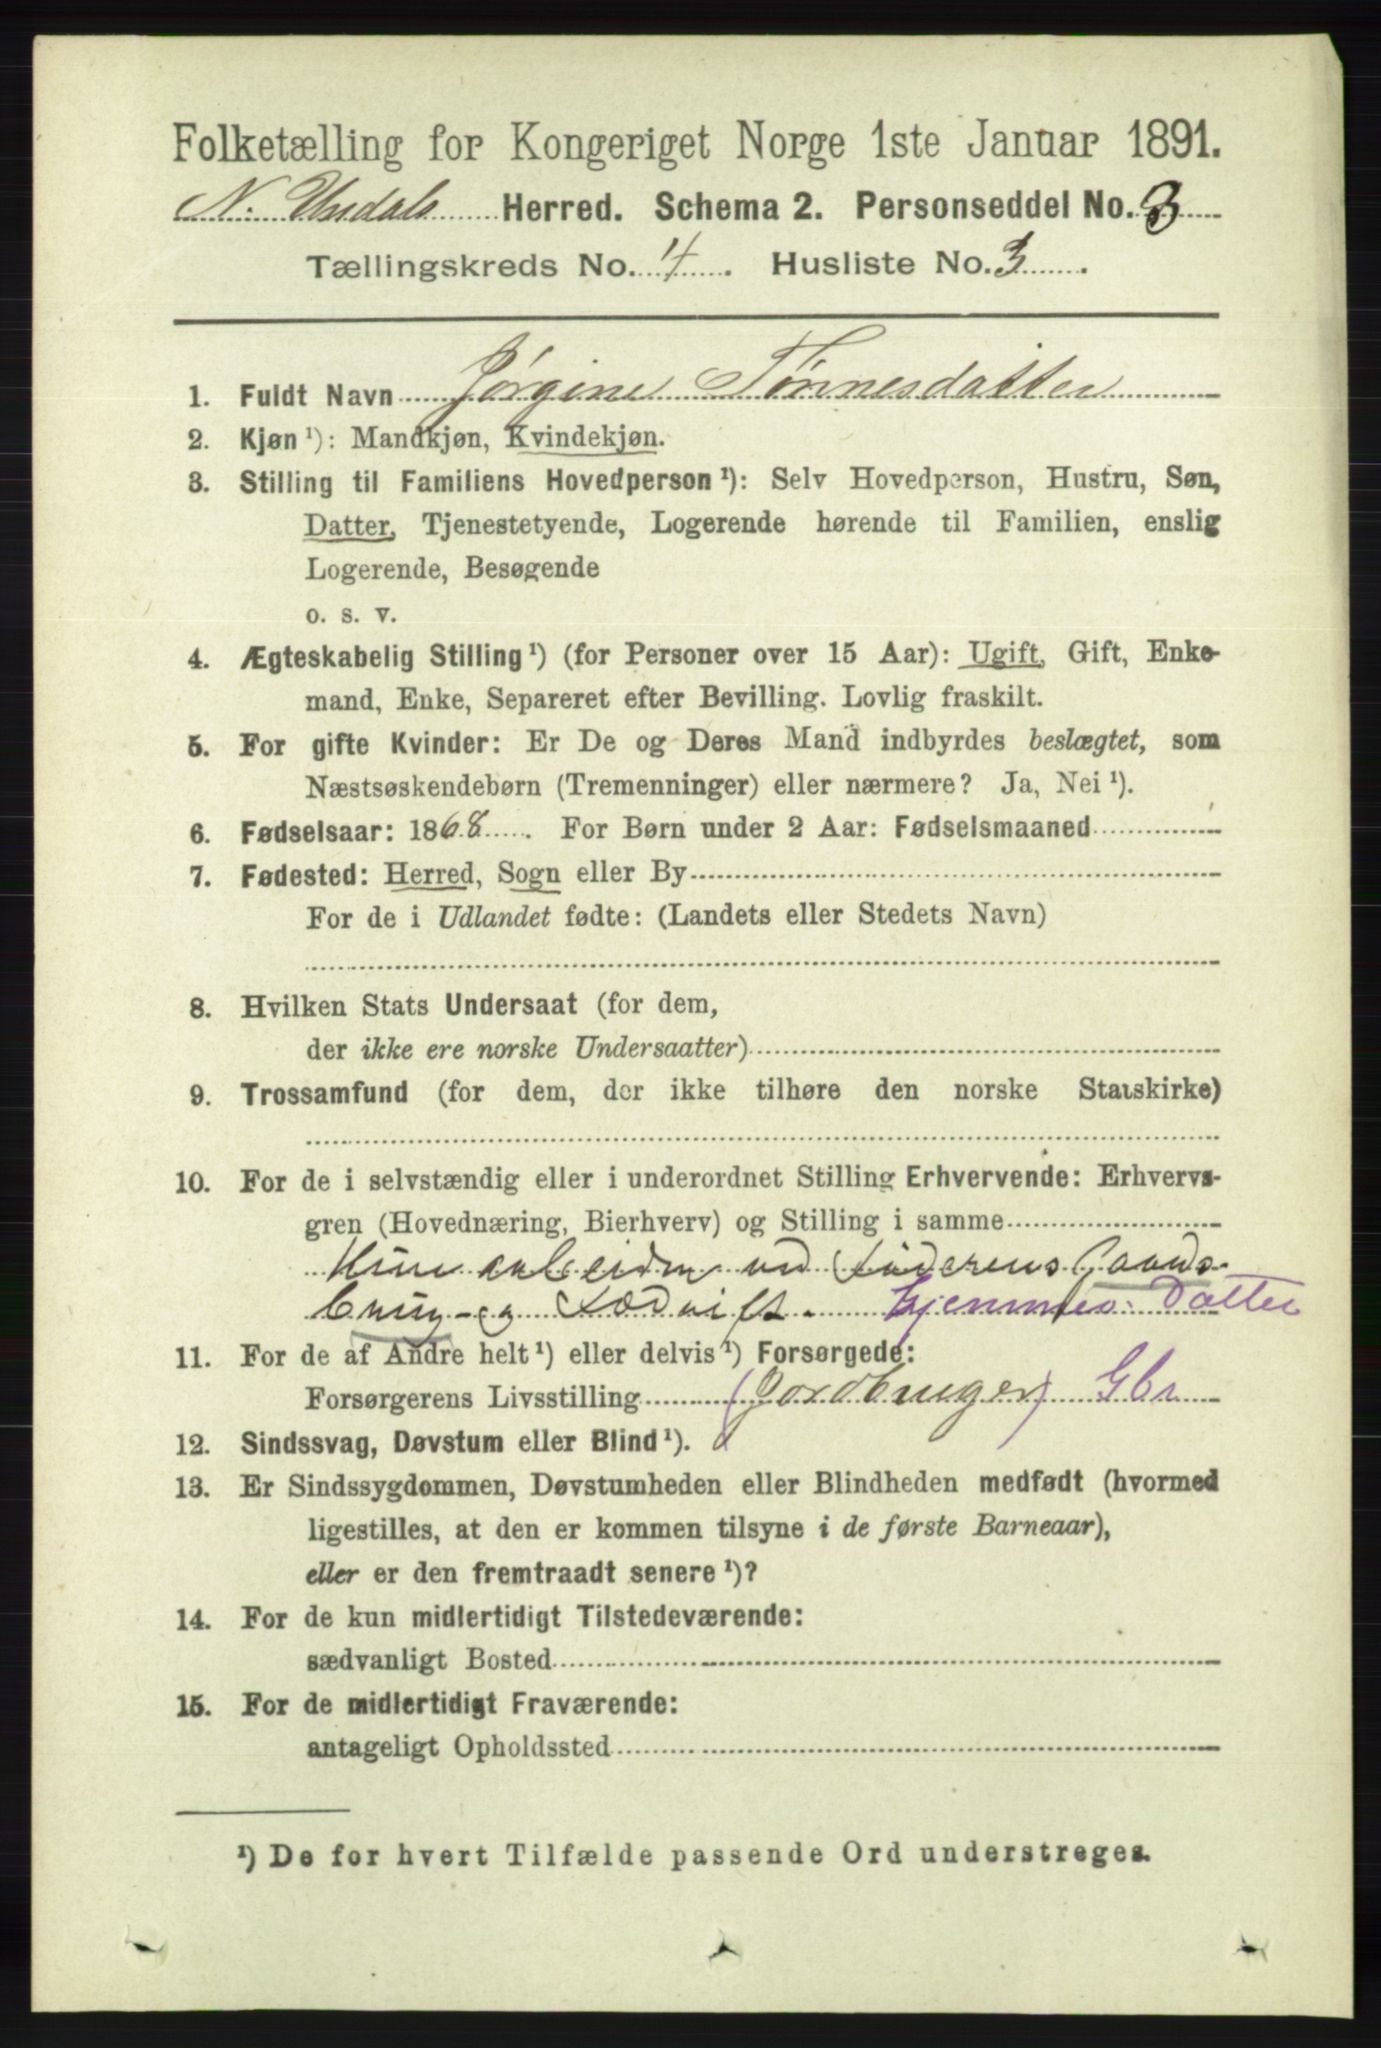 Folketælling for Kongeriget Norge 1ste Januar 1891.
N. Undals Herred. Schema 2. Personseddel No. 3
Tællingskreds No. 4. Husliste No. 3.
1. Fuldt Navn Jørgine Tønnesdatter
2. Kjøn ¹): Mandkjøn, Kvindekjøn.
3. Stilling til Familiens Hovedperson ¹): Selv Hovedperson, Hustru, Søn,
Datter, Tjenestetyende, Logerende hørende til Familien, enslig
Logerende, Besøgende
o. s. v.
4. Ægteskabelig Stilling ¹) (for Personer over 15 Aar): Ugift, Gift, Enke-
mand, Enke, Separeret efter Bevilling. Lovlig fraskilt.
5. For gifte Kvinder: Er De og Deres Mand indbyrdes beslægtet, som
Næstsøskendebørn (Tremenninger) eller nærmere? Ja, Nei ¹).
6. Fødselsaar: 1868. For Børn under 2 Aar: Fødselsmaaned
7. Fødested: Herred, Sogn eller By
For de i Udlandet fødte: (Landets eller Stedets Navn)
8. Hvilken Stats Undersaat (for dem,
der ikke ere norske Undersaatter)
9. Trossamfund (for dem, der ikke tilhøre den norske Statskirke)
10. For de i selvstændig eller i underordnet Stilling Erhvervende: Erhvervs-
gren (Hovednæring, Bierhverv) og Stilling i samme
ved Gaards-
brug og Hjemmev. Datter
11. For de af Andre helt ¹) eller delvis ¹) Forsørgede:
Forsørgerens Livsstilling (Jordbruger) Gbr
12. Sindssvag, Døvstum eller Blind ¹).
13. Er Sindssygdommen, Døvstumheden eller Blindheden medfødt (hvormed
ligestilles, at den er kommen tilsyne i de første Barneaar),
eller er den fremtraadt senere ¹)?
14. For de kun midlertidigt Tilstedeværende:
sædvanligt Bosted
15. For de midlertidigt Fraværende:
antageligt Opholdssted
¹) De for hvert Tilfælde passende Ord understreges.